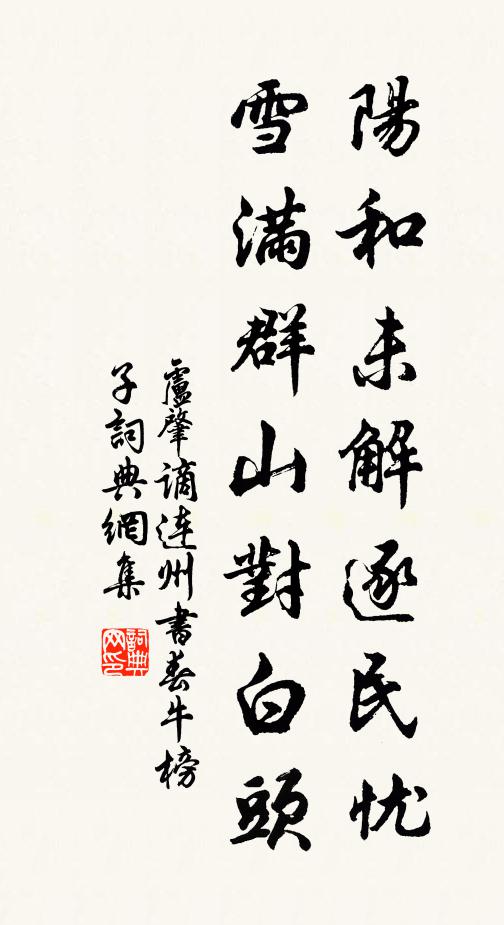 陽和未解逐民忧
雪滿群山對白頭
盧肇謫连州書春牛榜
子詞典網集
詞典网印